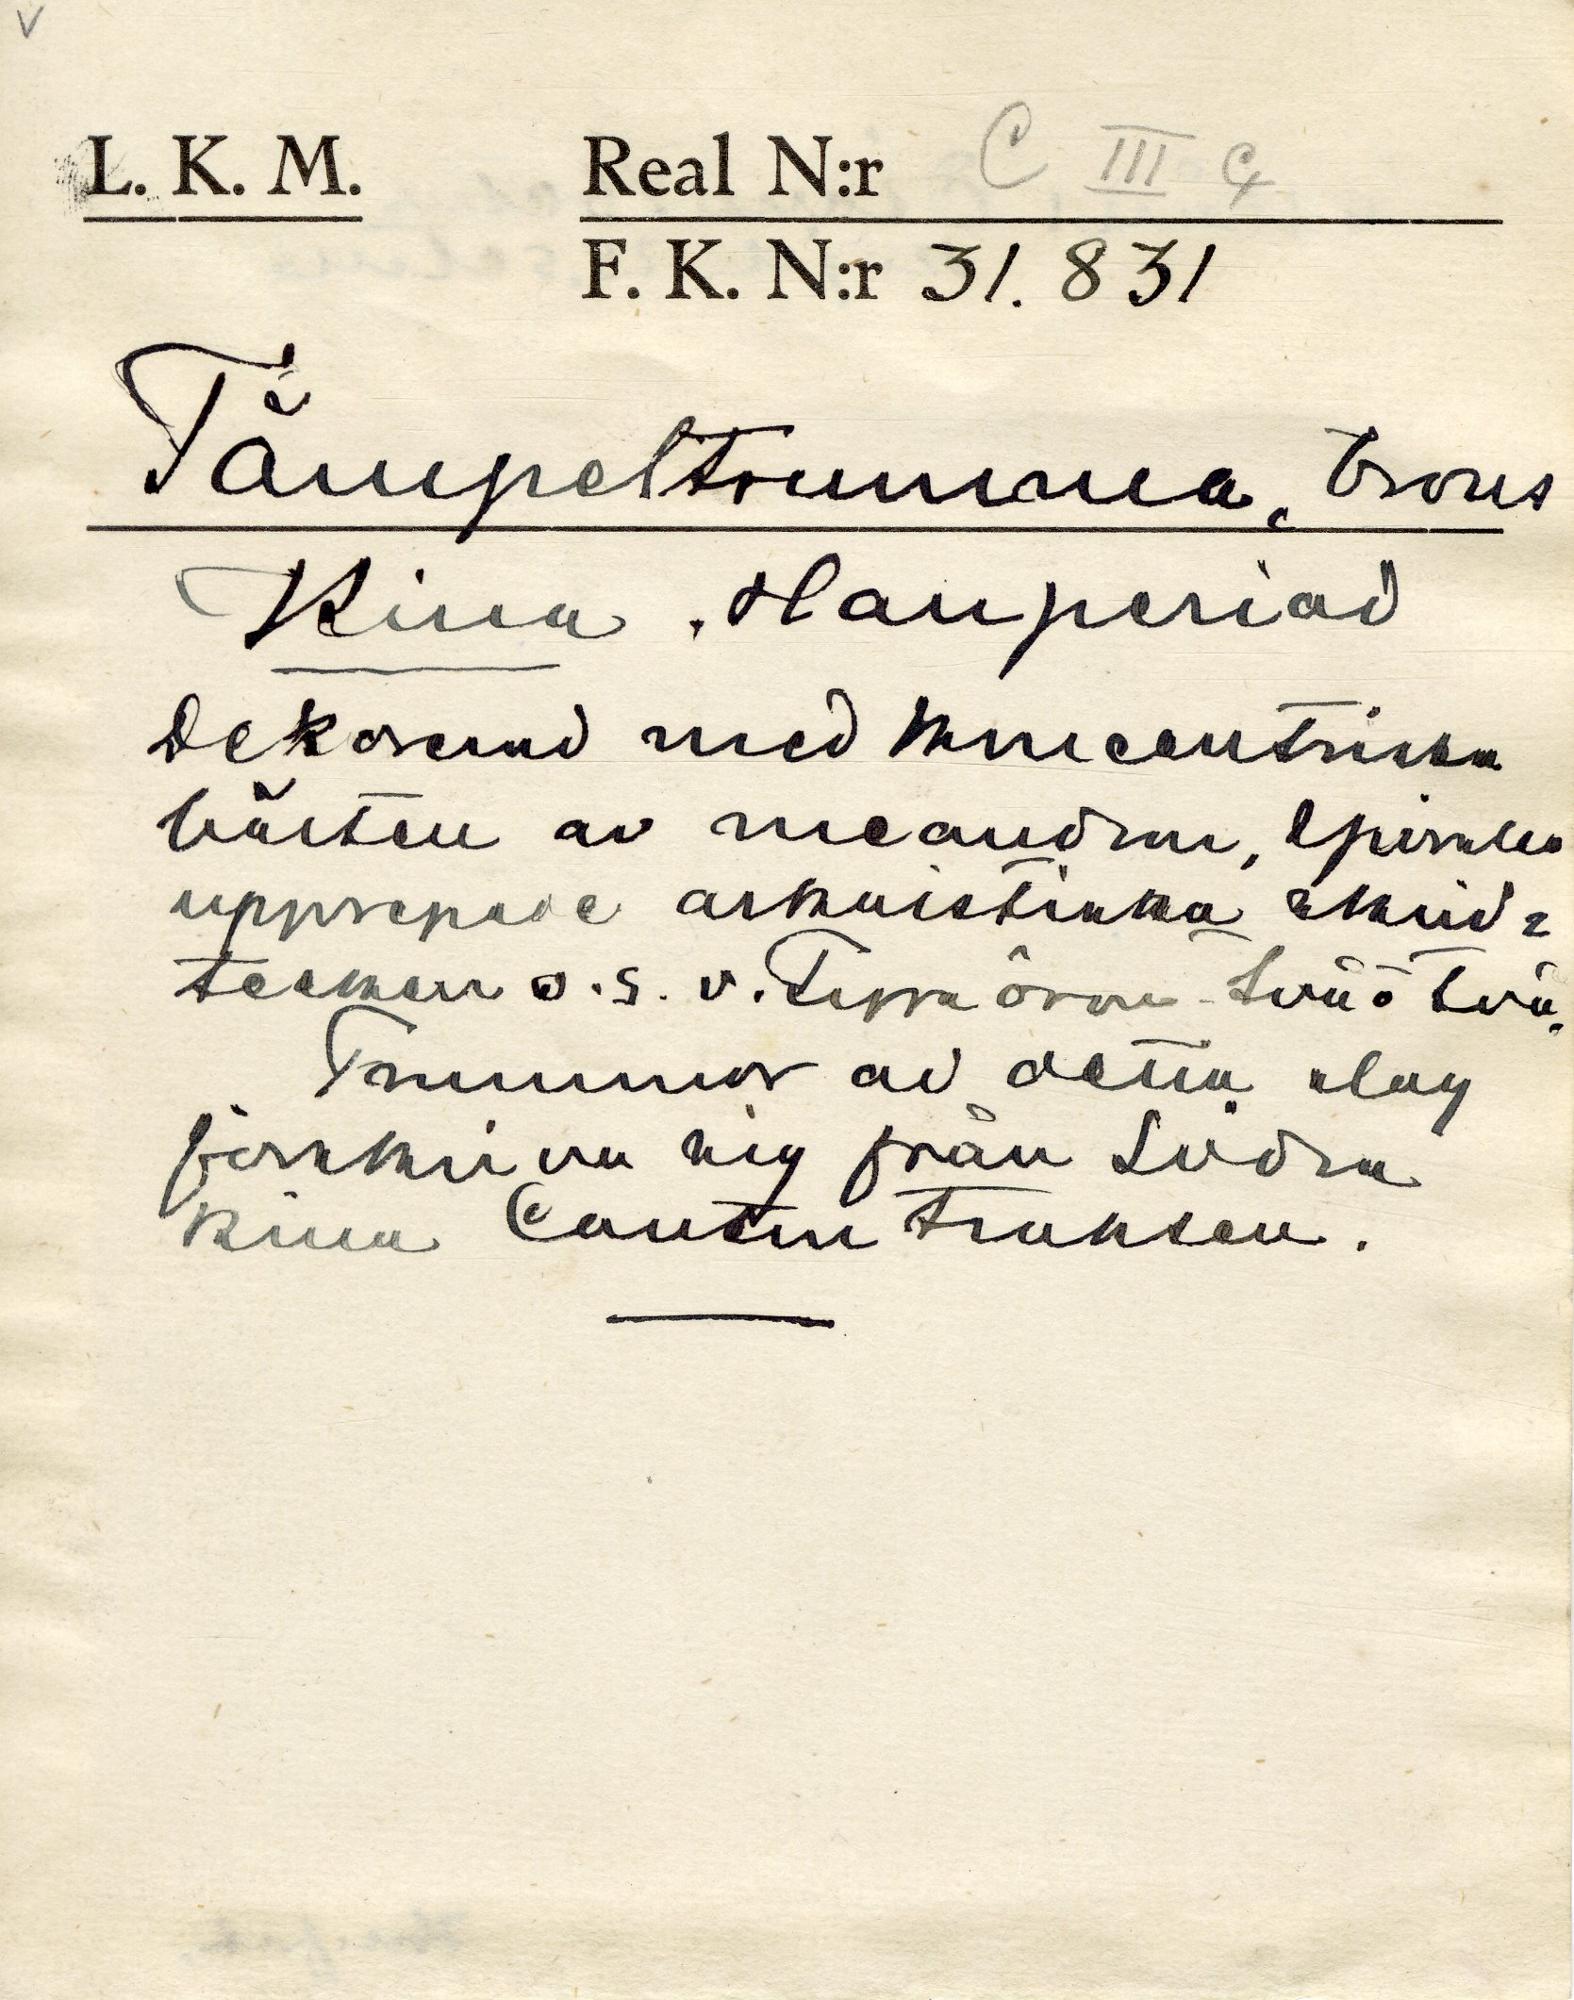 V
L. K. M. Real N:r C III
F. K. N:r 31.831
Tämpeltrumma, brons
Kina. Hanperiod
Dekorerad med koncentriska
fält av meandrar, spiraler
upprepade arkaistiska skrid-
tecken o.s.v. Fyra öron två o två.
Trummor av detta slag
förskriva sig från Södra
Kina Canton trakten.